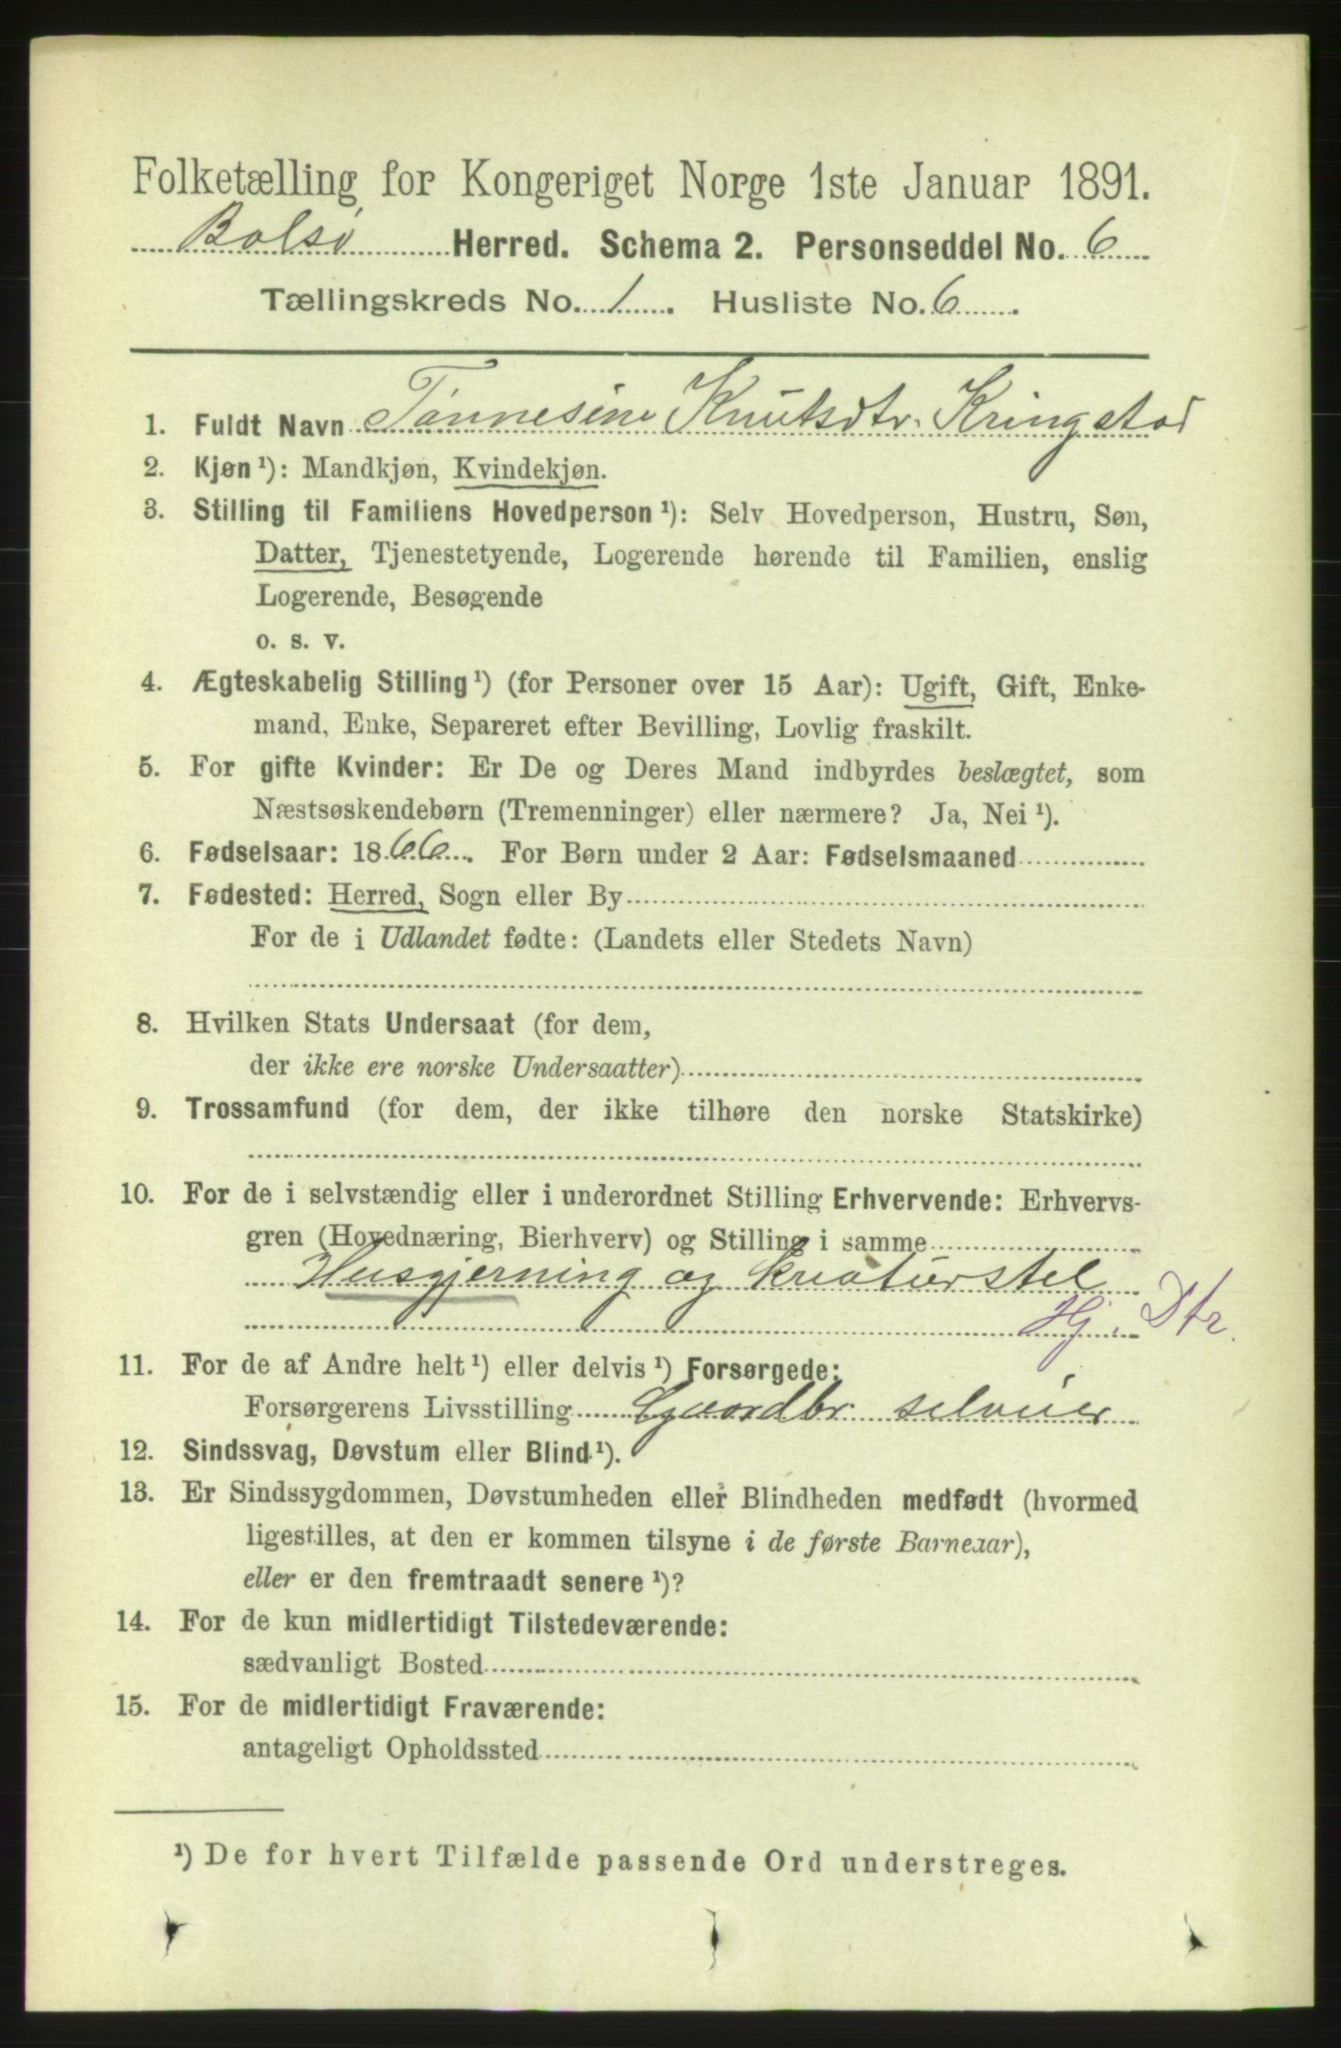 Folketælling for Kongeriget Norge 1ste Januar 1891.
Bolsø Herred. Schema 2. Personseddel No. 6
Tællingskreds No. 1. Husliste No. 6.
1. Fuldt Navn Tønnesine Knutsdtr. Kringstad
2. Kjøn ¹): Mandkjøn, Kvindekjøn.
3. Stilling til Familiens Hovedperson ¹): Selv Hovedperson, Hustru, Søn,
Datter, Tjenestetyende, Logerende hørende til Familien, enslig
Logerende, Besøgende
o. s. v.
4. Ægteskabelig Stilling ¹) (for Personer over 15 Aar): Ugift, Gift, Enke-
mand, Enke, Separeret efter Bevilling, Lovlig fraskilt.
5. For gifte Kvinder: Er De og Deres Mand indbyrdes beslægtet, som
Næstsøskendebørn (Tremenninger) eller nærmere? Ja, Nei ¹).
6. Fødselsaar: 1866. For Børn under 2 Aar: Fødselsmaaned
7. Fødested: Herred, Sogn eller By
For de i Udlandet fødte: (Landets eller Stedets Navn)
8. Hvilken Stats Undersaat (for dem,
der ikke ere norske Undersaatter)
9. Trossamfund (for dem, der ikke tilhøre den norske Statskirke)
10. For de i selvstændig eller i underordnet Stilling Erhvervende: Erhvervs-
gren (Hovednæring, Bierhverv) og Stilling i samme
Husgjerning og kreaturstel
Hj. Dtr.
11. For de af Andre helt ¹) eller delvis ¹) Forsørgede:
Forsørgerens Livsstilling Gaardbr. selveier
12. Sindssvag, Døvstum eller Blind ¹).
13. Er Sindssygdommen, Døvstumheden eller Blindheden medfødt (hvormed
ligestilles, at den er kommen tilsyne i de første Barneaar),
eller er den fremtraadt senere ¹)?
14. For de kun midlertidigt Tilstedeværende:
sædvanligt Bosted
15. For de midlertidigt Fraværende:
antageligt Opholdssted
¹) De for hvert Tilfælde passende Ord understreges.